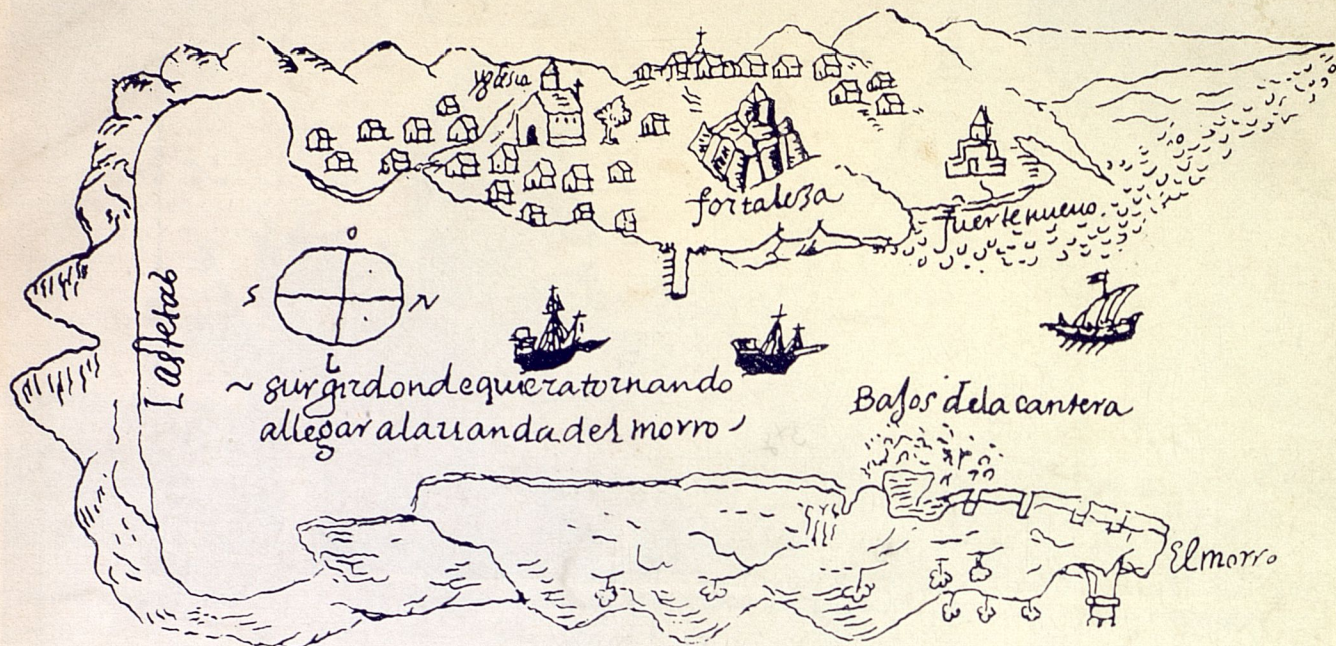 yglesia
fortaleza
fuertenueuo
O
S N
L
Lastetas
~ surgirdondequieratornando
allegaralauandadelmorro
Bajos delacantera
Elmorro